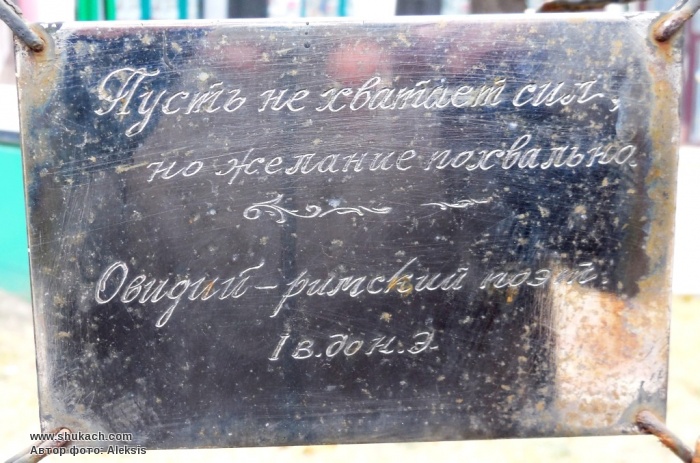 Пусть не хватает сил,
но желание похвально.
Овидий - римский поэт
I в. до н.э.
www.shukach.com
Автор фото: Aleksis